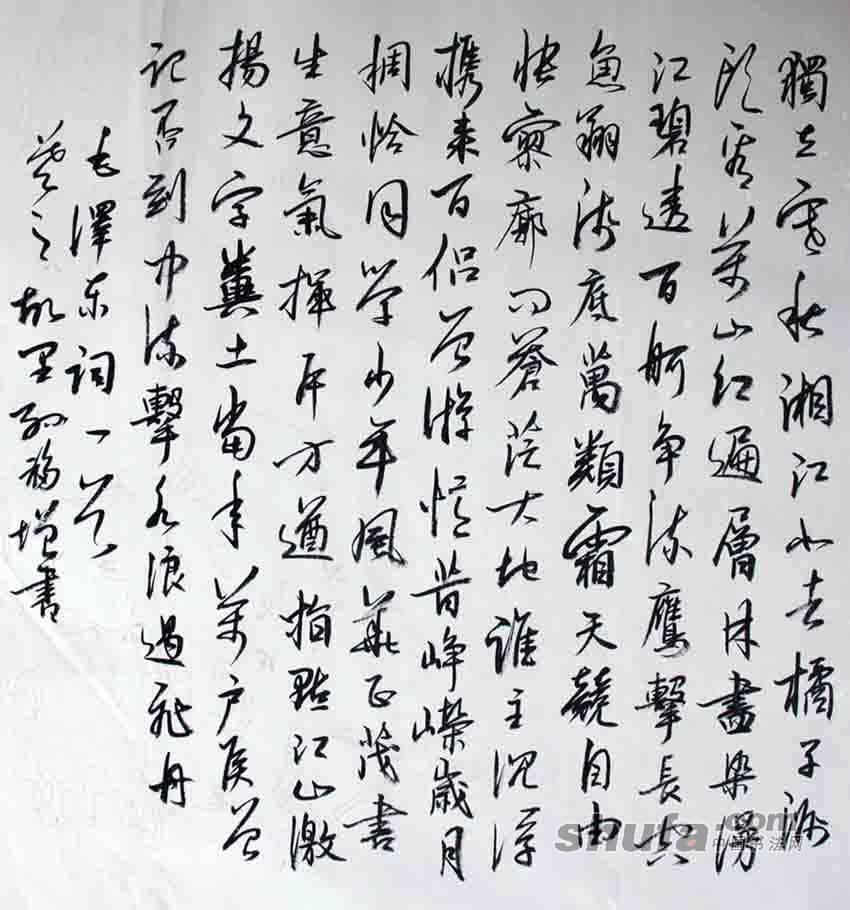 獨立寒秋湘江北去橘子洲
頭看萬山红遍層林盡染漫
江碧透百舸争流鷹擊長空
魚翔淺底萬類霜天競自由
悵寥廓问蒼茫大地誰主沉浮
携来百侣曾游憶昔峥嶸歲月
稠恰同学少年風華正茂書
生意氣揮斥方遒指點江山激
揚文字糞土當年萬户侯曾
記否到中流擊水浪遏飛舟
毛澤东詞一首
之故里孙福增書
shufa.com
中国书法网